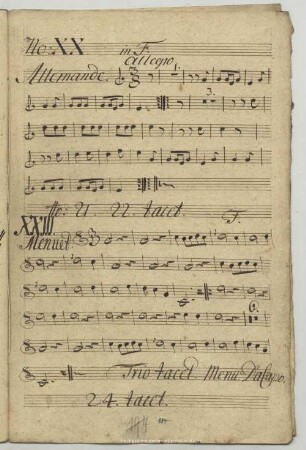 No: XX in F.
Allegro
Allemande.
1.
3.
No: 21. 22. tacet.
F.
XXIII
Menuet
6.
Trio tacet Menu: D:Capo.
24. tacet.